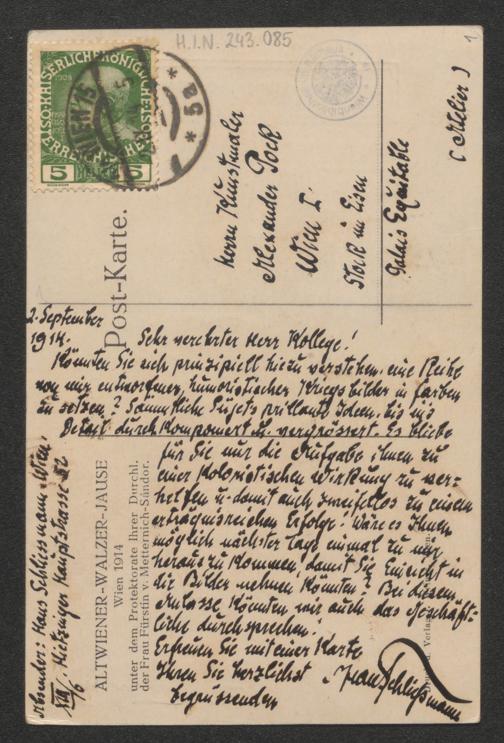 H.I.N. 243.085
1
5
5
WIEN
* 5a *
Post-Karte.
Herrn Kunstmaler
Alexander Pock
Wien I.
Stock im Eisen
Palais Equitable
(Atelier)
2. September
1914.
Sehr verehrter Herr Kollege!
Könnten Sie sich prinzipiell hiezu verstehen, eine Reihe
von mir entworfener, humoristischer Kriegsbilder in Farben
zu setzen? Sämmtliche Sujets brillante Ideen, bis ins
Detail durchkomponiert u. vergrössert. Es bliebe
für Sie nur die Aufgabe ihnen zu
einer koloristischen Wirkung zu ver-
helfen u. damit auch zweifellos zu einem
erträgnisreichen Erfolge! Wäre es Ihnen
möglich nächster Tage einmal zu mir
herauszukommen, damit Sie Einsicht in
die Bilder nehmen könnten? Bei diesem
Anlasse könnten wir auch das Geschäft-
liche durchsprechen!
Erfreuen Sie mit einer Karte
Ihren Sie herzlichst
begrüssenden
Hans Schließmann
Absender: Hans Schliessmann, Wien,
XIII/6 Hietzinger Hauptstrasse
ALTWIENER-WALZER-JAUSE
Wien 1914
unter dem Protektorate Ihrer Durchl.
der Frau Fürstin v. Metternich-Sándor.